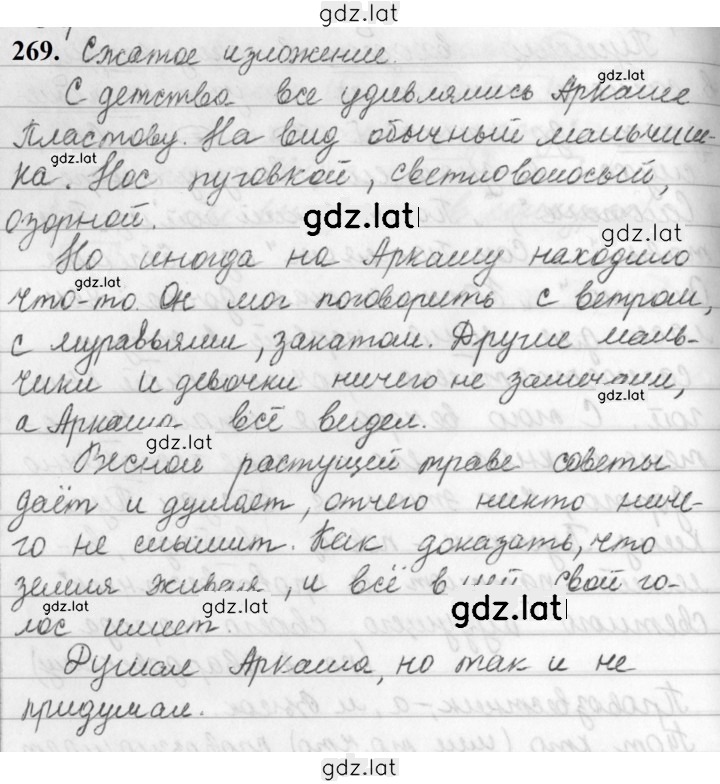 gdz.lat
269. Сжатое изложение.
gdz.lat
С детства все удивлялись Аркаше
Пластову. На вид обычный мальчиш-
gdz.lat
ка. Нос пуговкой, светловолосый,
озорной.
gdz.lat
gdz.lat
Но иногда на Аркашу находило
gdz.lat
что-то. Он мог поговорить с ветром,
с муравьями, закатом. Другие маль-
чики и девочки ничего не замечали,
gdz.lat
а Аркаша всё видел.
gdz.lat
Весной растущей траве советы
даёт и думает, отчего никто ниче-
го не слышит. Как доказать, что
земля живая, и всё в ней свой го-
gdz.lat gdz.lat gdz.lat
лос имеет.
Думал Аркаша, но так и не
придумал.
gdz.lat